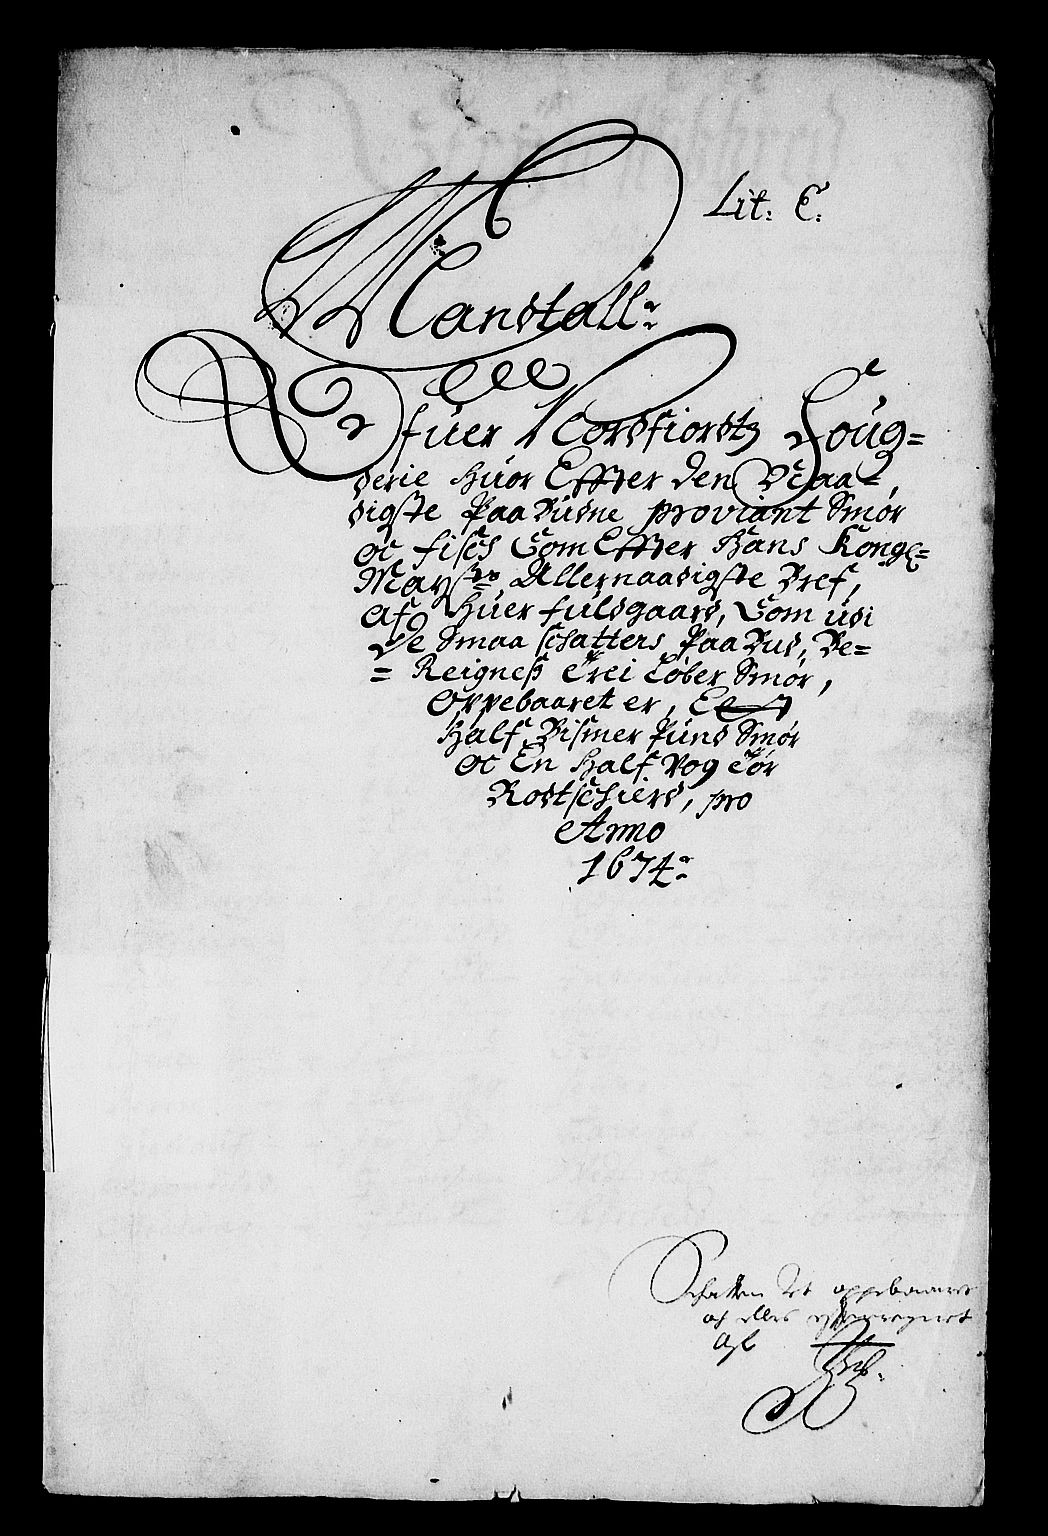 Lit: C:
Mandtall:
Ofuer Nordfiordtz Foug=
derie Huor Effter den Naa=
digste Paa Budne proviant Smør
oc fisch Som Effter Hans Kongl=
Maystz Allernaadigste Bref,
af Huer fuldgaard, Som udi
De Smaa schatters PaaBud, Be=
= Reigness Trei Løber Smør,
Oppebaaret er,
Half Bismer Pund Smør
oc En Half Vog Tør
Rodtschierd, pro
Anno
1674:
Schatten Er oppebaaret
och elles efterregnet
Aff